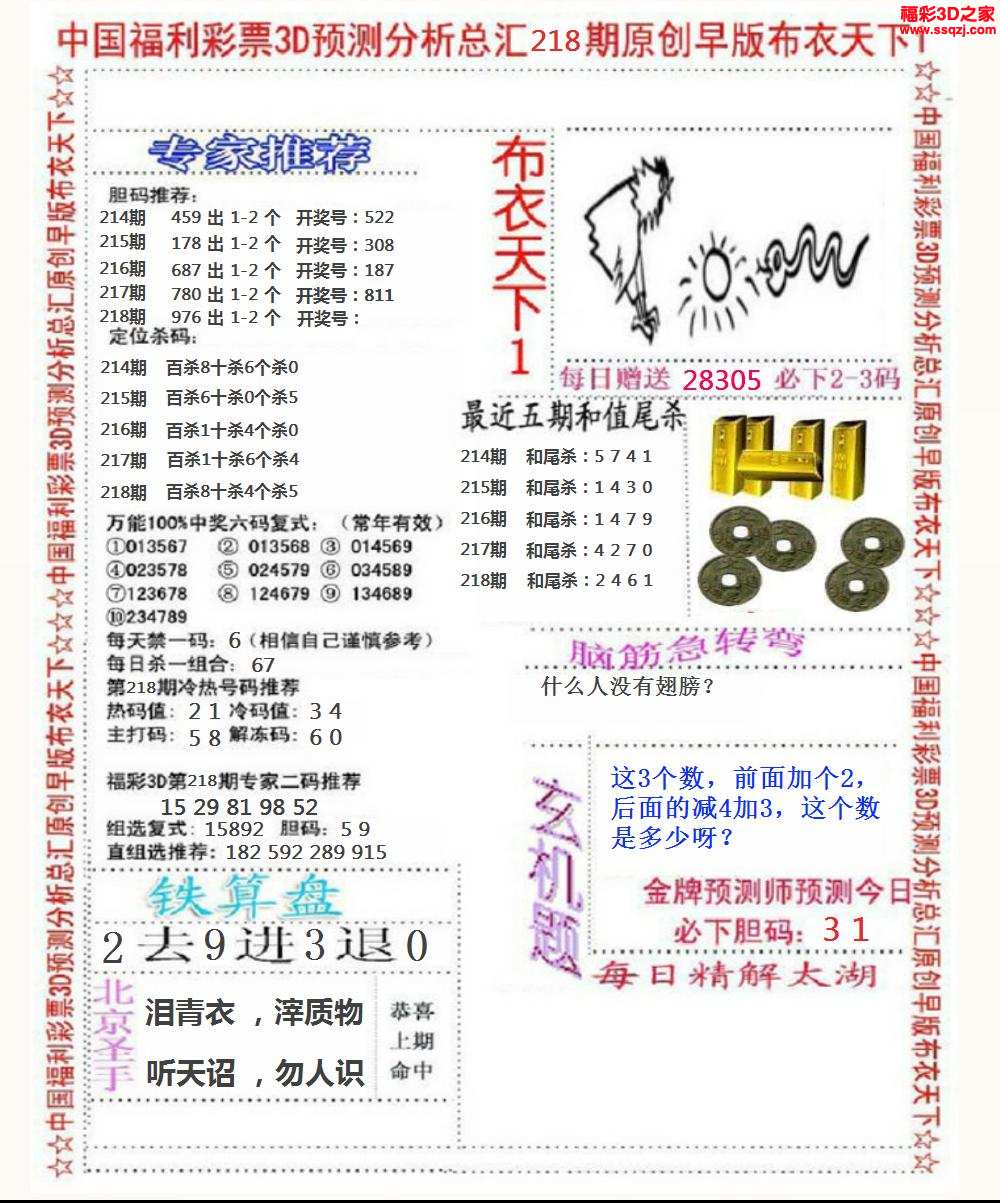 福彩3D之家
www.ssqzj.com
中国福利彩票3D预测分析总汇218期原创早版布衣天下1
☆☆中国福利彩票3D预测分析总汇原创早版布衣天下☆☆中国福利彩票3D预测分析总汇原创早版布衣天下☆☆
专家推荐
胆码推荐:
214期 459 出 1-2 个 开奖号:522
215期 178 出 1-2 个 开奖号:308
216期 687 出 1-2 个 开奖号:187
217期 780 出 1-2 个 开奖号:811
218期 976 出 1-2 个 开奖号:
定位杀码:
214期 百杀8十杀6个杀0
215期 百杀6十杀0个杀5
216期 百杀1十杀4个杀0
217期 百杀1十杀6个杀4
218期 百杀8十杀4个杀5
万能100%中奖六码复式:(常年有效)
①013567 ② 013568 ③ 014569
④023578 ⑤ 024579 ⑥ 034589
⑦123678 ⑧ 124679 ⑨ 134689
⑩234789
每天禁一码: 6(相信自己谨慎参考)
每日杀一组合: 67
第218期冷热号码推荐
热码值: 2 1 冷码值: 3 4
主打码: 5 8 解冻码: 6 0
福彩3D第218期专家二码推荐
15 29 81 98 52
组选复式: 15892 胆码: 5 9
直组选推荐: 182 592 289 915
铁算盘
2去9进3退0
北京圣手
泪青衣 ,滓质物
听天诏 ,勿人识
恭喜
上期
命中
布衣天下1
每日赠送 28305 必下2-3码
最近五期和值尾杀
214期 和尾杀:5 7 4 1
215期 和尾杀:1 4 3 0
216期 和尾杀:1 4 7 9
217期 和尾杀:4 2 7 0
218期 和尾杀:2 4 6 1
脑筋急转弯
什么人没有翅膀?
玄机题
这3个数,前面加个2,
后面的减4加3,这个数
是多少呀?
金牌预测师预测今日
必下胆码: 3 1
每日精解太湖
☆☆中国福利彩票3D预测分析总汇原创早版布衣天下☆☆中国福利彩票3D预测分析总汇原创早版布衣天下☆☆